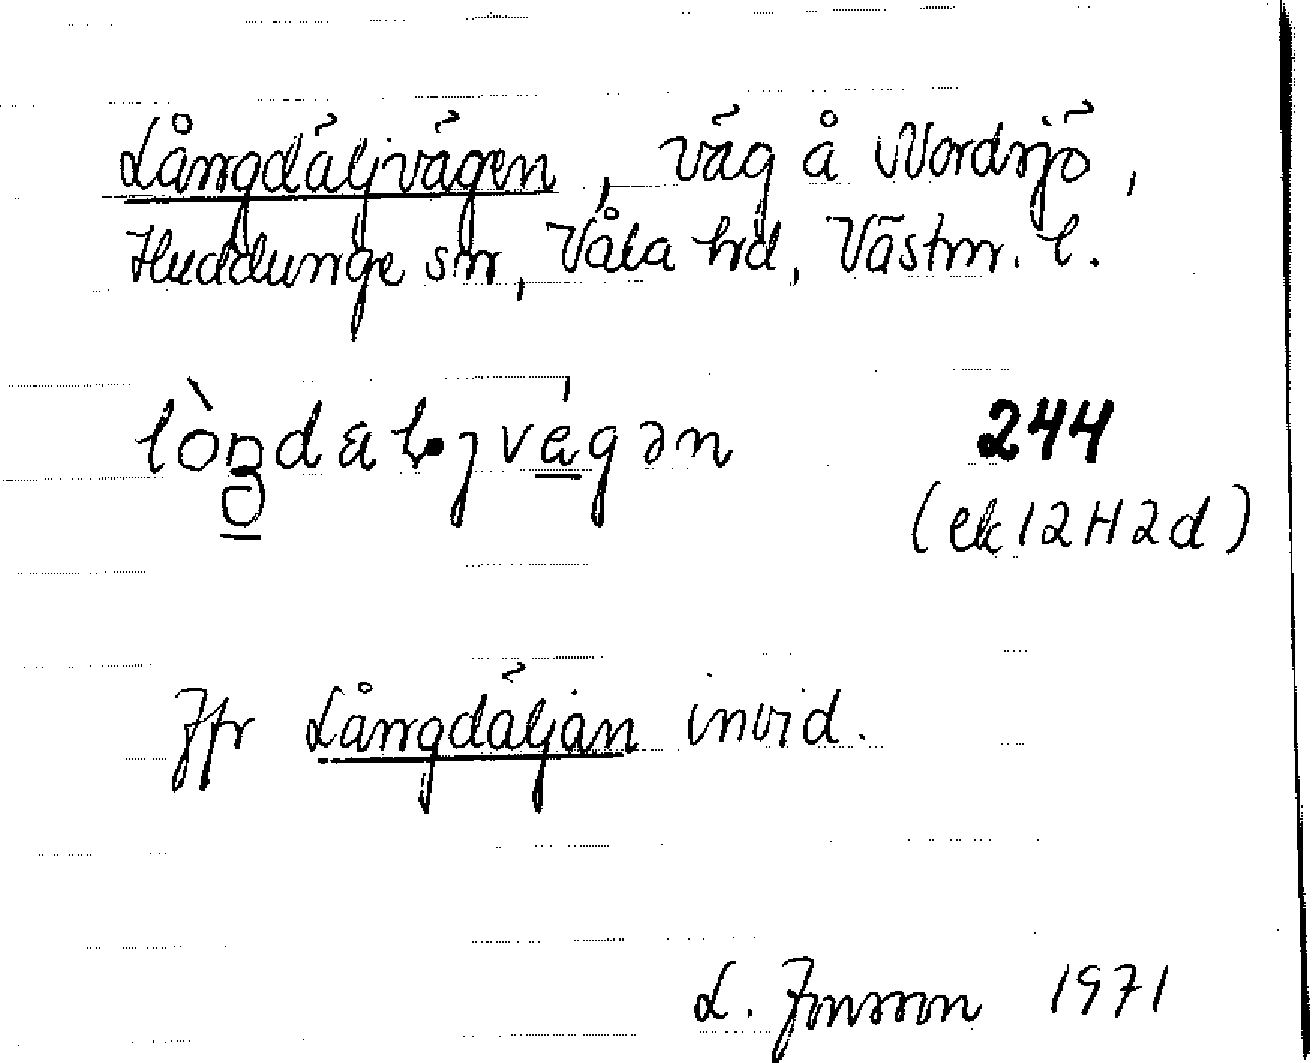 Långdäljvägen, väg å Nordsjö,
Huddunge sn, Våla hd, Västm. l.
244
(ek 12H2d)
Jfr Långdäljan invid.
L. Jonsson 1971